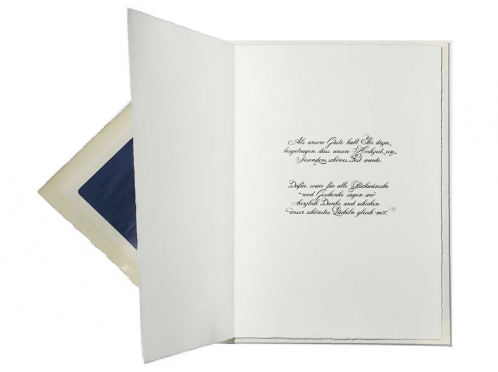 Als unsere Gäste habt Ihr dazu
beigetragen, dass unsere Hochzeit ein
besonders schönes Fest wurde.
Dafür sowie für alle Glückwünsche
und Geschenke sagen wir
herzlich Danke und schicken
unser schönstes Lächeln gleich mit.